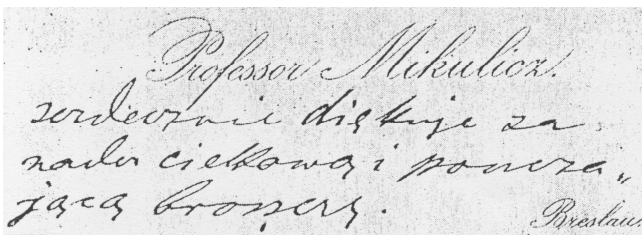 Professor Mikulicz.
serdecznie dziękuje za
nader ciekawą i poucza„
jącą broszurę.
Breslau.